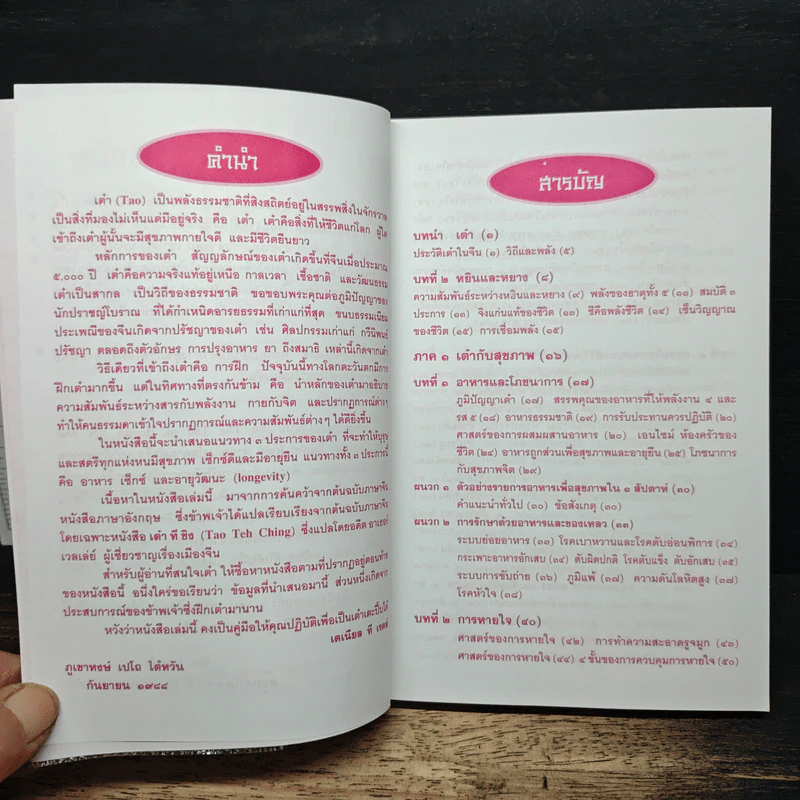 คำนำ
เต๋า (Tao) เป็นพลังธรรมชาติที่สิงสถิตย์อยู่ในสรรพสิ่งในจักรวาล
เป็นสิ่งที่มองไม่เห็นแต่มีอยู่จริง คือ เต๋า เต๋าคือสิ่งที่ให้ชีวิตแก่โลก ผู้ใด
เข้าถึงเต๋าผู้นั้นจะมีสุขภาพกายใจดี และมีชีวิตยืนยาว
หลักการของเต๋า สัญญลักษณ์ของเต๋าเกิดขึ้นที่จีนเมื่อประมาณ
๕,๐๐๐ ปี เต๋าคือความจริงแท้อยู่เหนือ กาลเวลา เชื้อชาติ และวัฒนธรรม
เต๋าเป็นสากล เป็นวิถีของธรรมชาติ ขอขอบพระคุณต่อภูมิปัญญาของ
นักปราชญ์โบราณ ที่ได้กำเหนิดอารยธรรมที่เก่าแก่ที่สุด ขนบธรรมเนียม
ประเพณีของจีนเกิดจากปรัชญาของเต๋า เช่น ศิลปกรรมเก่าแก่ กวีนิพนธ์
ปรัชญา ตลอดถึงตัวอักษร การปรุงอาหาร ยา ถึงสมาธิ เหล่านี้เกิดจากเต๋า
วิธีเดียวที่เข้าถึงเต๋าคือ การฝึก ปัจจุบันนี้ทางโลกตะวันตกมีการ
ฝึกเต๋ามากขึ้น แต่ในทิศทางที่ตรงกันข้าม คือ นำหลักของเต๋ามาอธิบาย
ความสัมพันธ์ระหว่างสารกับพลังงาน กายกับจิต และปรากฏการณ์ต่างๆ
ทำให้คนธรรมดาเข้าใจปรากฏการณ์และความสัมพันธ์ต่างๆ ได้ดียิ่งขึ้น
ในหนังสือนี้จะนำเสนอแนวทาง ๓ ประการของเต๋า ที่จะทำให้บุรุษ
และสตรีทุกแห่งหนมีสุขภาพ เซ็กซ์ดีและมีอายุยืน แนวทางทั้ง ๓ ประการนี้
คือ อาหาร เซ็กส์ และอายุวัฒนะ (longevity)
เนื้อหาในหนังสือเล่มนี้ มาจากการค้นคว้าจากต้นฉบับภาษาจีน
หนังสือภาษาอังกฤษ ซึ่งข้าพเจ้าได้แปลเรียบเรียงจากต้นฉบับภาษาจีน
โดยเฉพาะหนังสือ เต๋า ที ชิง (Tao Teh Ching) ซึ่งแปลโดยอดีต อาเธอร์
เวลเล่ย์ ผู้เชี่ยวชาญเรื่องเมืองจีน
สำหรับผู้อ่านที่สนใจเต๋า ให้ซื้อหาหนังสือตามที่ปรากฏอยู่ตอนท้าย
ของหนังสือนี้ อนึ่งใคร่ขอเรียนว่า ข้อมูลที่นำเสนอมานี้ ส่วนหนึ่งเกิดจาก
ประสบการณ์ของข้าพเจ้าซึ่งฝึกเต๋ามานาน
หวังว่าหนังสือเล่มนี้ คงเป็นคู่มือให้คุณปฏิบัติเพื่อเป็นเต๋าเตะปี้บได้
เดเนียล ที เรดด์
ภูเขาหงษ์ เปโถ ไต้หวัน
กันยายน ๑๙๘๘
สารบัญ
บทนำ เต๋า (๑)
ประวัติเต๋าในจีน (๑) วิถีและพลัง (๕)
บทที่ ๒ หยินและหยาง (๘)
ความสัมพันธ์ระหว่างหยินและหยาง (๙) พลังของธาตุทั้ง ๕ (๑๑) สมบัติ ๓
ประการ (๑๓) จิงแก่นแท้ของชีวิต (๑๓) ชีคือพลังชีวิต (๑๔) เซ็นวิญญาณ
ของชีวิต (๑๕) การเชื่อมพลัง (๑๕)
ภาค ๑ เต๋ากับสุขภาพ (๑๖)
บทที่ ๑ อาหารและโภชนาการ (๑๗)
ภูมิปัญญาเต๋า (๑๗) สรรพคุณของอาหารที่ให้พลังงาน ๔ และ
รส ๕ (๑๘) อาหารธรรมชาติ (๑๙) การรับประทานควรปฏิบัติ (๒๐)
ศาสตร์ของการผสมผสานอาหาร (๒๐) เอนไซม์ ห้องครัวของ
ชีวิต (๒๔) อาหารถูกส่วนเพื่อสุขภาพและอายุยืน (๒๕) โภชนาการ
กับสุขภาพจิต (๒๙)
ผนวก ๑ ตัวอย่างรายการอาหารเพื่อสุขภาพใน ๑ สัปดาห์ (๓๐)
คำแนะนำทั่วไป (๓๐) ข้อสังเกตุ (๓๐)
ผนวก ๒ การรักษาด้วยอาหารและของเหลว (๓๓)
ระบบย่อยอาหาร (๓๓) โรคเบาหวานและโรคตับอ่อนพิการ (๓๔)
กระเพาะอาหารอักเสบ (๓๔) ตับผิดปกติ โรคตับแข็ง ตับอักเสบ (๓๕)
ระบบการขับถ่าย (๓๖) ภูมิแพ้ (๓๗) ความดันโลหิตสูง (๓๗)
โรคหัวใจ (๓๘)
บทที่ ๒ การหายใจ (๔๐)
ศาสตร์ของการหายใจ (๔๒) การทำความสะอาดรูจมูก (๔๓)
ศาสตร์ของการหายใจ (๔๔) ๔ ขั้นของการควบคุมการหายใจ (๕๐)